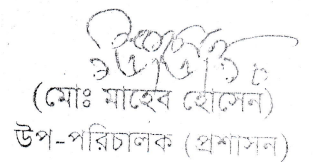 (মোঃ মাহেব হোসেন)
উপ-পরিচালক (প্রশাসন)